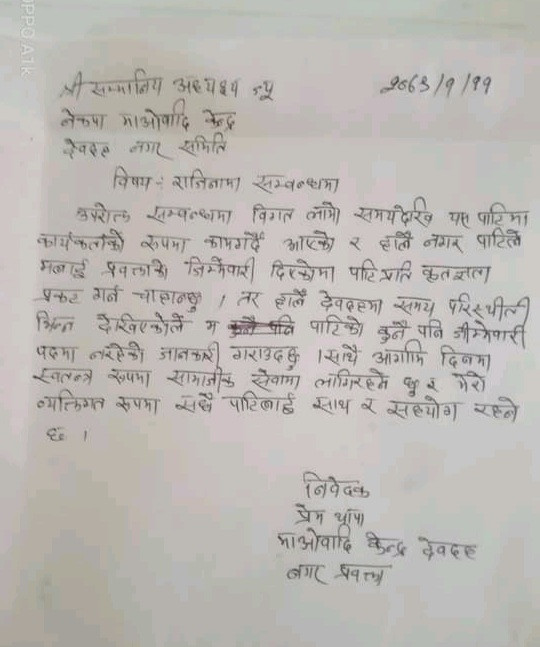 OPPO A1k
श्री सम्मानिय अध्यक्ष ज्यू २०८३/१/११
नेकपा माओवादि केन्द्र
देवदह नगर समिति
विषय :- राजिनामा सम्बन्धमा
उपरोक्त सम्बन्धमा विगत लामो समयदेखि यस पार्टिमा
कार्यकर्ताको रूपमा कामगर्दै आएको र हालै नगर पार्टिले
मलाई प्रवक्ताको जिम्मेवारी दिएकोमा पार्टि प्रति कृतज्ञता
प्रकट गर्न चाहान्छु । तर हालै देवदहमा समय परिस्थीती
भिन्न देखिएकोले म पार्टिको कुनै पनि जीम्मेवारी
पदमा नरहेको जानकारी गराउदछु । साथै आगामि दिनमा
स्वतन्त्र रूपमा सामाजीक सेवामा लागिरहने छु र मेरो
व्यक्तिगत रूपमा सधै पार्टिलाई साथ र सहयोग रहने
छ ।
निवेदक
प्रेम थापा
माओवादि केन्द्र देवदह
नगर प्रवक्ता